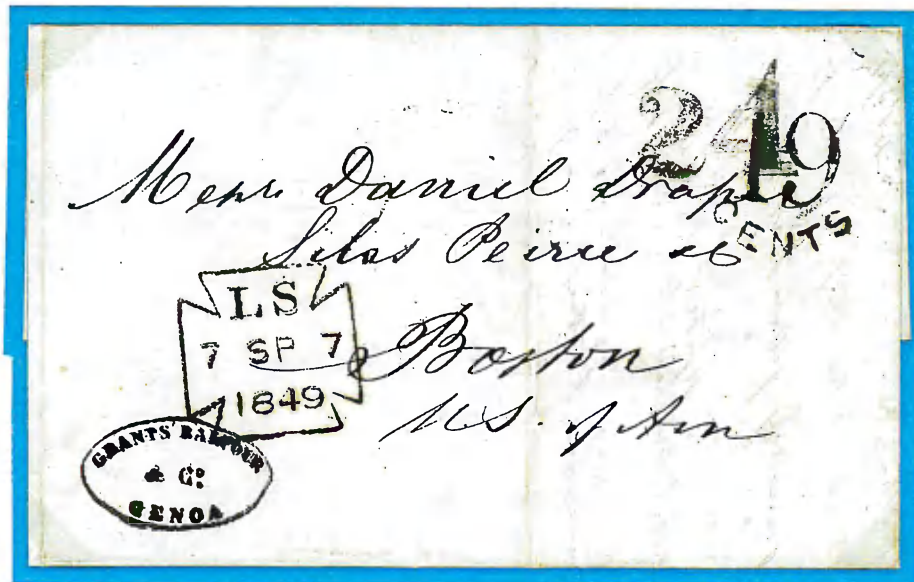 24
19
CENTS
Messrs Daniel Draper
Silas Peirce &
Boston
U.S. of Am
LS
7 SP 7
1849
GRANTS BALFOUR
& Co.
GENOA